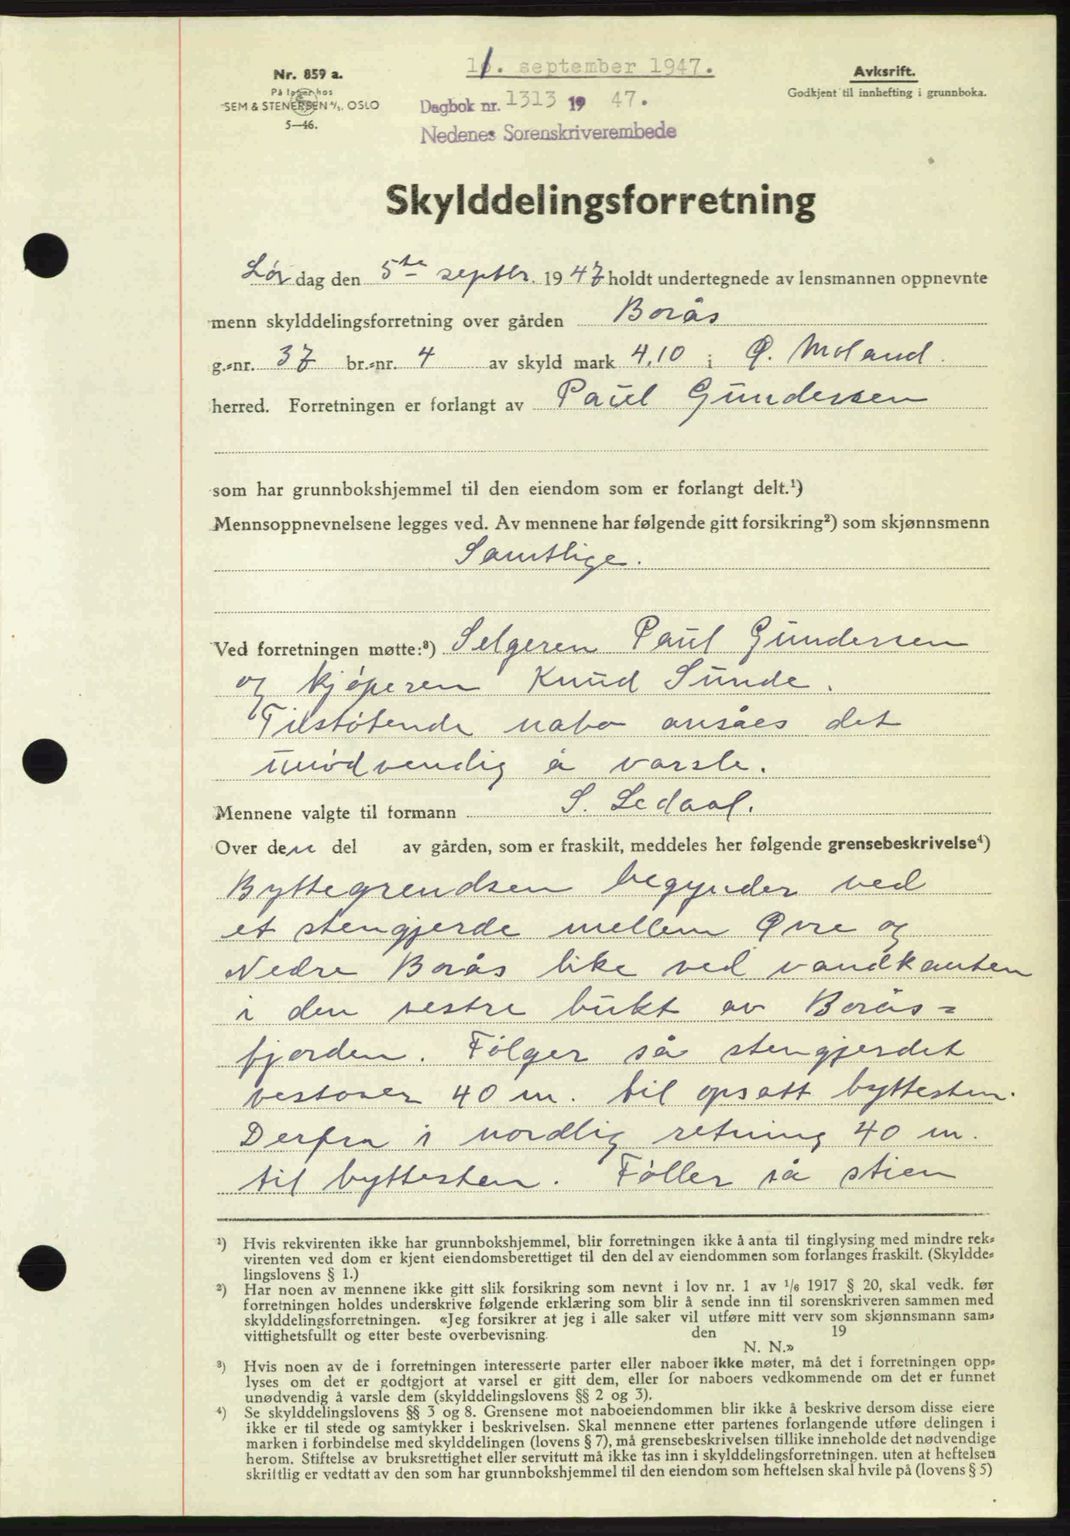 Nr. 859 a.
På lager hos
SEM & STENERSEN A/S. OSLO
5—46.
11. september 1947.
Dagbok nr. 1313 19 47.
Nedenes Sorenskriverembede
Avksrift.
Godkjent til innhefting i grunnboka.
Skylddelingsforretning
Lør dag den 5te septbr. 1947 holdt undertegnede av lensmannen oppnevnte
menn skylddelingsforretning over gården Borås
g.-nr. 37 br.-nr. 4 av skyld mark 4,10 i Ø. Moland.
herred. Forretningen er forlangt av Paul Gundersen
som har grunnbokshjemmel til den eiendom som er forlangt delt.¹)
Mennsoppnevnelsene legges ved. Av mennene har følgende gitt forsikring²) som skjønnsmenn
Samtlige.
Ved forretningen møtte:³) Selgeren Paul Gundersen
og kjøperen Knud Sunde.
Tilstøtende nabo ansåes det
unødvendig å varsle.
Mennene valgte til formann S. Ledaal.
Over den del av gården, som er fraskilt, meddeles her følgende grensebeskrivelse⁴)
Byttegrendsen begynder ved
et stengjerde mellem Øvre og
Nedre Borås like ved vandkanten
i den vestre bukt av Borås=
fjorden. Følger så stengjerdet
vestover 40 m. til opsatt byttesten.
Derfra i nordlig retning 40 m.
til byttesten. Føller så stien
¹) Hvis rekvirenten ikke har grunnbokshjemmel, blir forretningen ikke å anta til tinglysing med mindre rek-
virenten ved dom er kjent eiendomsberettiget til den del av eiendommen som forlanges fraskilt. (Skyldde-
lingslovens § 1.)
²) Har noen av mennene ikke gitt slik forsikring som nevnt i lov nr. 1 av 1/6 1917 § 20, skal vedk. før
forretningen holdes underskrive følgende erklæring som blir å sende inn til sorenskriveren sammen med
skylddelingsforretningen. «Jeg forsikrer at jeg i alle saker vil utføre mitt verv som skjønnsmann sam-
vittighetsfullt og etter beste overbevisning. den 19
N. N.»
³) Hvis noen av de i forretningen interesserte parter eller naboer ikke møter, må det i forretningen opp-
lyses om det er godtgjort at varsel er gitt dem, eller for naboers vedkommende om det er funnet
unødvendig å varsle dem (skylddelingslovens §§ 2 og 3).
⁴) Se skylddelingslovens §§ 3 og 8. Grensene mot naboeiendommen blir ikke å beskrive dersom disse eiere
ikke er til stede og samtykker i beskrivelsen. Skal mennene etter partenes forlangende utføre delingen i
marken i forbindelse med skylddelingen (lovens § 7), må grensebeskrivelsen tillike inneholde det nødvendige
herom. Stiftelse av bruksrettighet eller servitutt må ikke tas inn i skylddelingsforretningen, uten at heftelsen
skriftlig er vedtatt av den som har grunnbokshjemmel til den eiendom som heftelsen skal hvile på (lovens § 5)